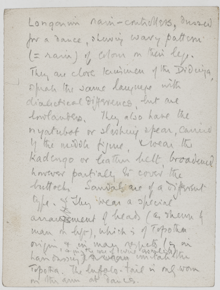 Longarim rain-controllers, dressed
for a dance, showing wavy pattern
(= rain) of colour on their leg.
They are close kinsmen of the Didinga,
speak the same language with
dialectical differences, but are
lowlanders. They also have the
nyatubot or slashing spear, carried
by the middle figure, & wear the
or leather belt, broadened
however partially to cover the
buttocks. Sandals are of a different
type. They wear a special
arrangement of beads (as shown by
man on left), which is of Topotha
origin & in many respects (e.g. in
Topotha. The
on the arm at dances